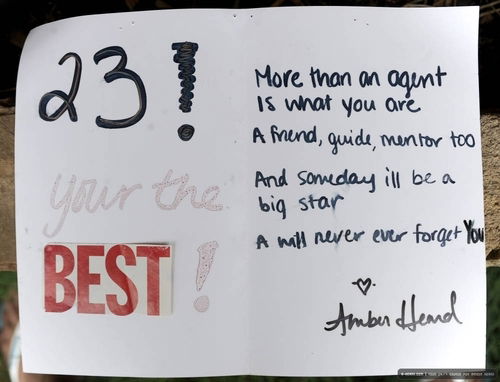 23!
your the
BEST!
More than an agent
Is what you are
A friend, guide, mentor too
And someday ill be a
big star
A will never ever forget You
Amber Heard